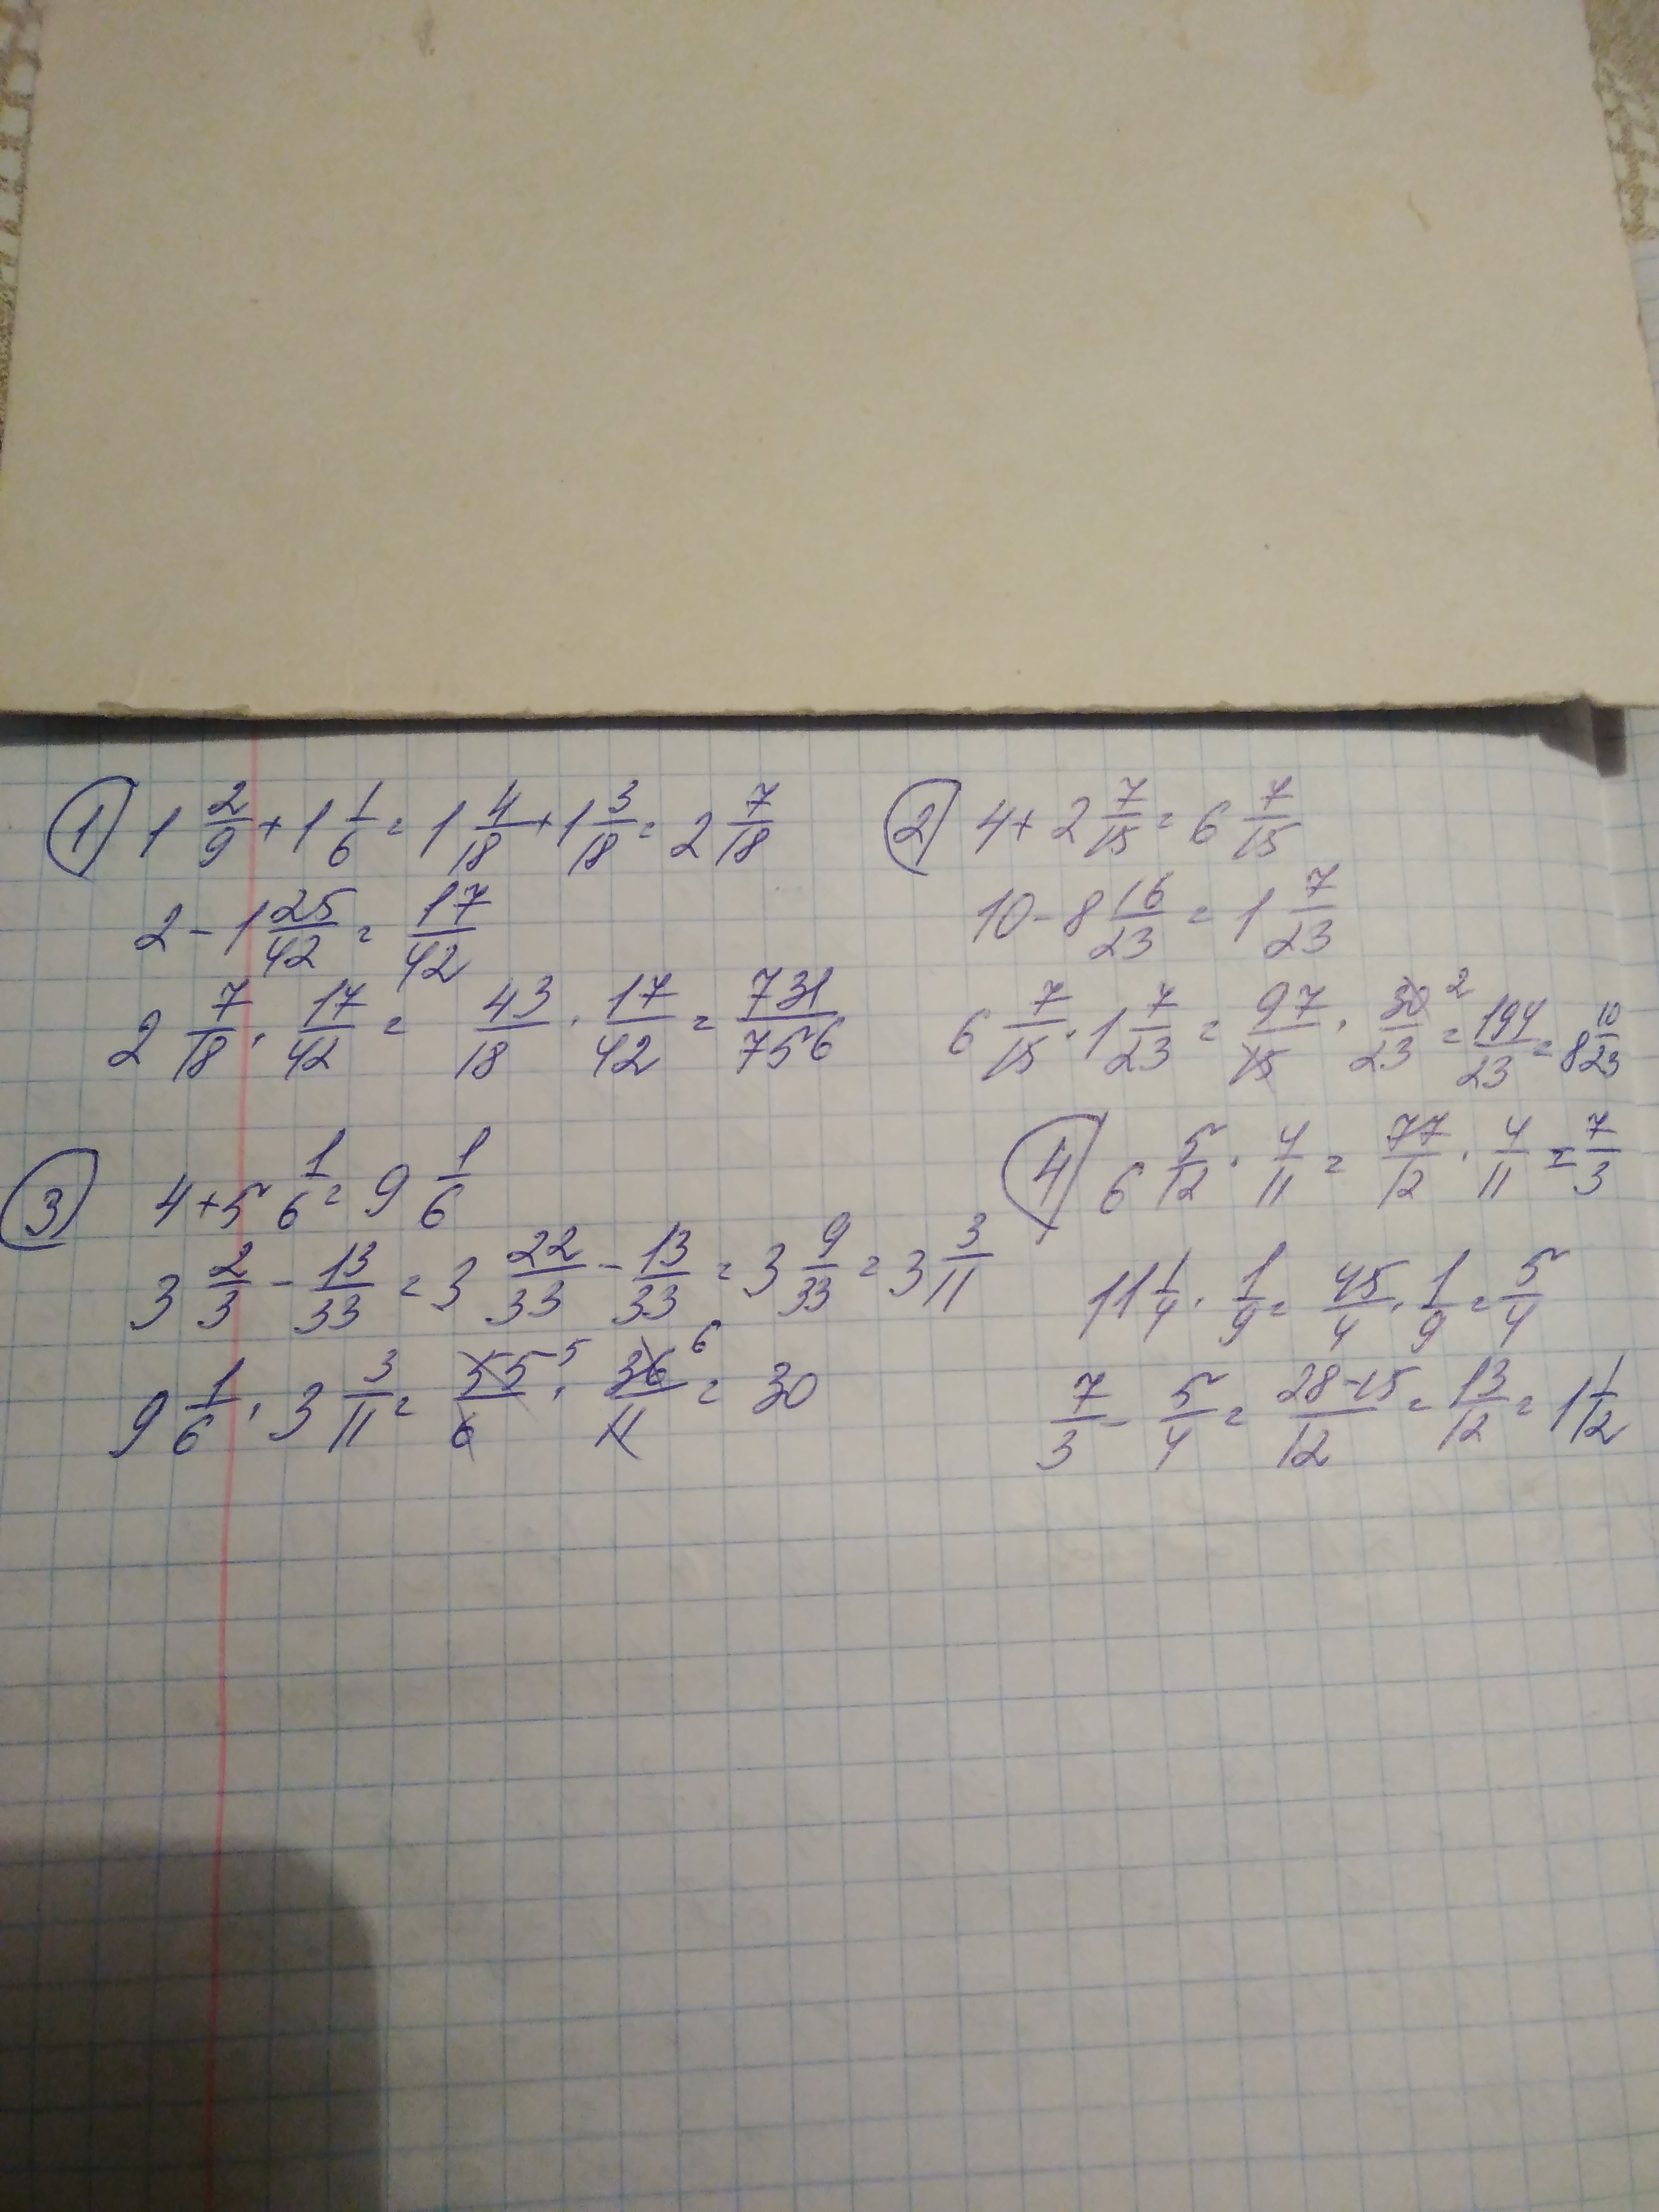 ① 1 2/9 + 1 1/6 = 1 4/18 + 1 3/18 = 2 7/18
2 - 1 25/42 = 17/42
2 7/18 · 17/42 = 43/18 · 17/42 = 731/756
② 4 + 2 7/15 = 6 7/15
10 - 8 16/23 = 1 7/23
6 7/15 · 1 7/23 = 97/15 · 30/23 2 = 194/23 = 8 10/23
③ 4 + 5 1/6 = 9 1/6
3 2/3 - 13/33 = 3 22/33 - 13/33 = 3 9/33 = 3 3/11
9 1/6 · 3 3/11 = 55/6 5 · 36/11 6 = 30
④ 6 5/12 · 4/11 = 77/12 · 4/11 = 7/3
11 1/4 · 1/9 = 45/4 · 1/9 = 5/4
7/3 - 5/4 = 28-15/12 = 13/12 = 1 1/12